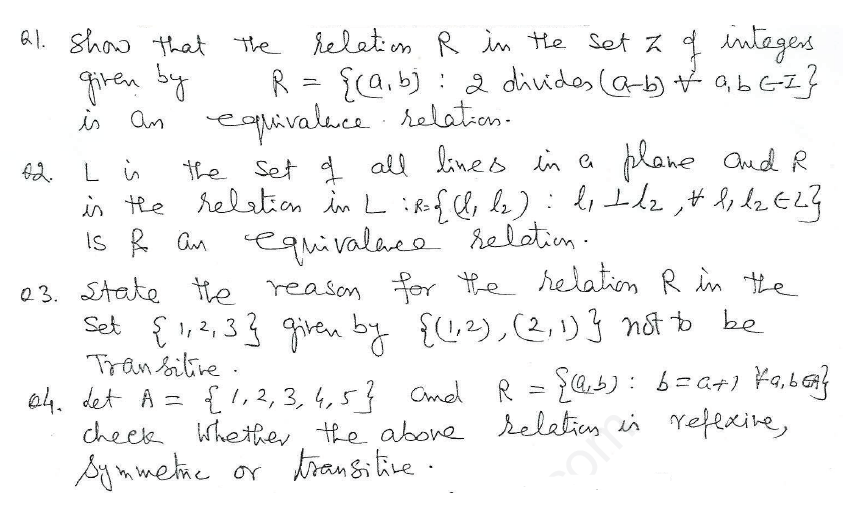 Q1. Show that the relation R in the set Z of integers
given by R = {(a,b) : 2 divides (a-b) ∀ a,b ∈ Z}
is an equivalence relation.
Q2. L is the set of all lines in a plane and R
is the relation in L : R={(l₁ l₂) : l₁ ⊥ l₂, ∀ l₁ l₂ ∈ L}
Is R an equivalence relation.
Q3. State the reason for the relation R in the
set {1,2,3} given by {(1,2),(2,1)} not to be
Transitive.
Q4. Let A = {1,2,3,4,5} and R = {(a,b) : b = a+1 ∀ a,b ∈ A}
check whether the above relation is reflexive,
symmetric or transitive.
.com